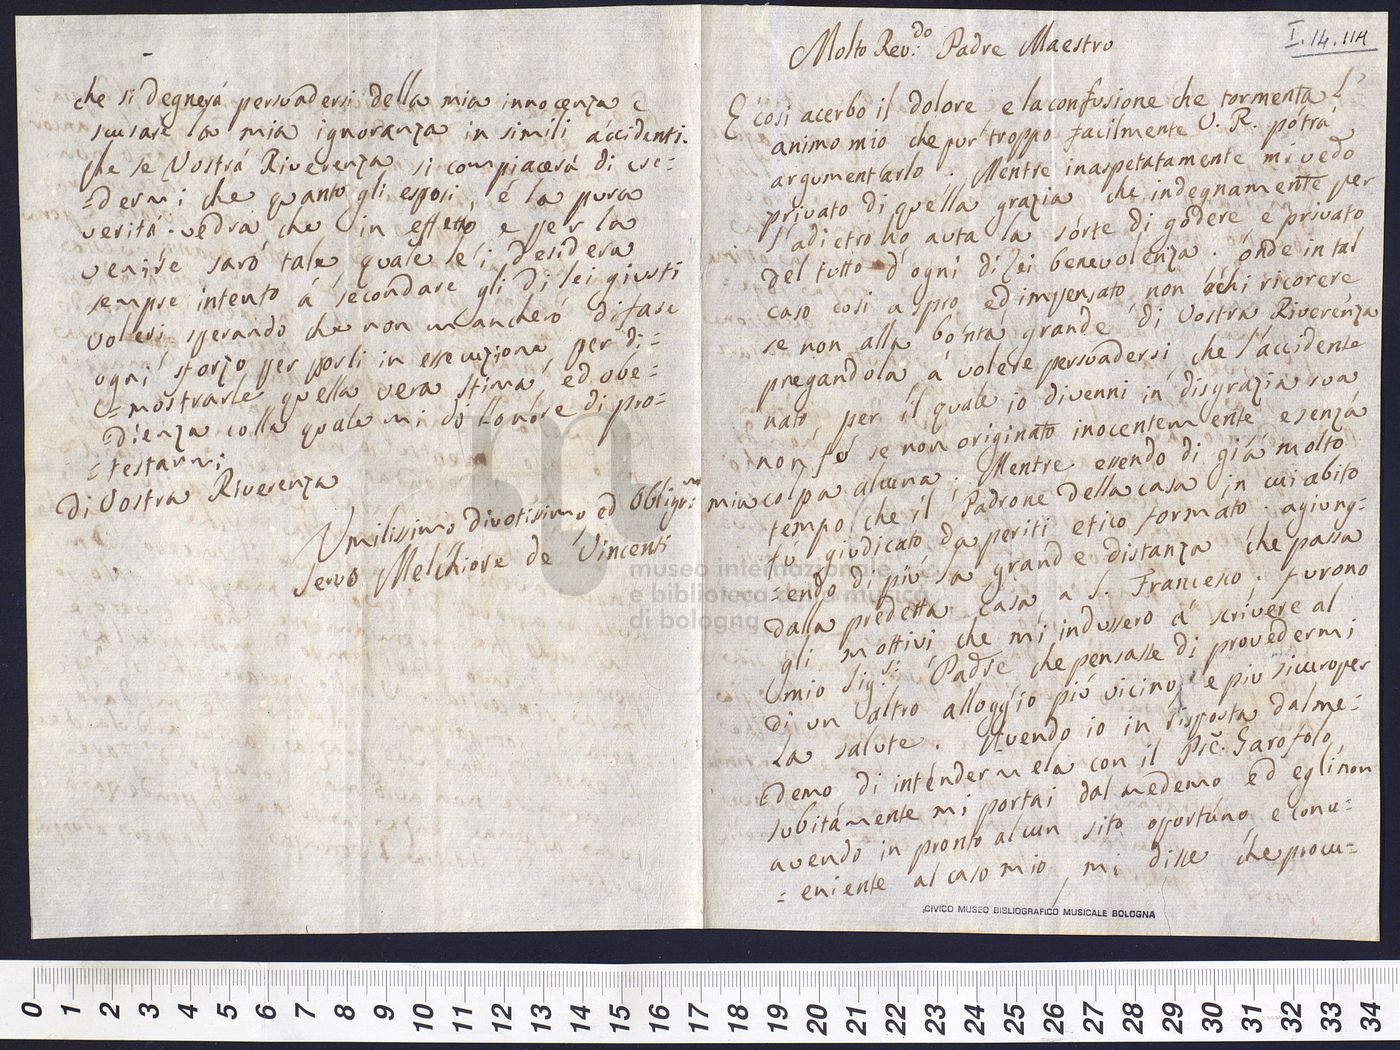 I.14.114
Molto Rev:do Padre Maestro
E' cosi acerbo il dolore e la confusione che tormenta l'
animo mio che pur troppo facilmente V. R. potrà
argumentarlo. Mentre inaspetatamente mi vedo
privato di quella grazia che indegnamente per
l'adietro ho auta la sorte di godere e privato
del tutto d'ogni di Lei benevolenza. onde in tal
caso cosi aspro ed impensato non ò chi ricorere
se non alla bontà grande di Vostra Riverenza
pregandola a volere persuadersi che l'accidente
nato, per il quale io divenni in disgrazia sua
non fu se non originato inocentemente e senza
mia colpa alcuna. Mentre essendo di già molto
tempo che il Padrone della casa in cui abito
fu giudicato da periti etico formato. agiung-
=endo di più la grande distanza che passa
dalla predetta casa a S. Francesco. furono
gli mottivi che mi indussero a scrivere al
mio Sig.r Padre che pensasse di provedermi
di un altro alloggio più vicino, e più sicuro per
la salute. Avendo io in risposta dal me-
=demo di intendermela con il Pre. Garofolo,
subitamente mi portai dal medemo ed egli non
avendo in pronto alcun sito oportuno e conu=
=eniente al caso mio, mi disse che procu=
CIVICO MUSEO BIBLIOGRAFICO MUSICALE BOLOGNA
che si degnerà persuadersi della mia innocenza e
scusare la mia ignoranza in simili accidenti.
che se Vostra Riverenza si compiacerà di cre=
=dermi che quanto gli esposi, é la pura
verità. vedrà che in effetto e per la
venire sarò tale quale lei desidera
sempre intento á secondare gli di lei giusti
voleri sperando che non mancherò di fare
ogni sforzo per porli in essecuzione, per di=
=mostrarle quella vera stima, ed ube=
dienza colla quale mi dò l'onore di pro=
=testarmi
di Vostra Riverenza
Umilissimo Divotissimo ed Obbligmo
Servo Melchiore de Vincenti
museo internazionale
e biblioteca della musica
di bologna
0 1 2 3 4 5 6 7 8 9 10 11 12 13 14 15 16 17 18 19 20 21 22 23 24 25 26 27 28 29 30 31 32 33 34